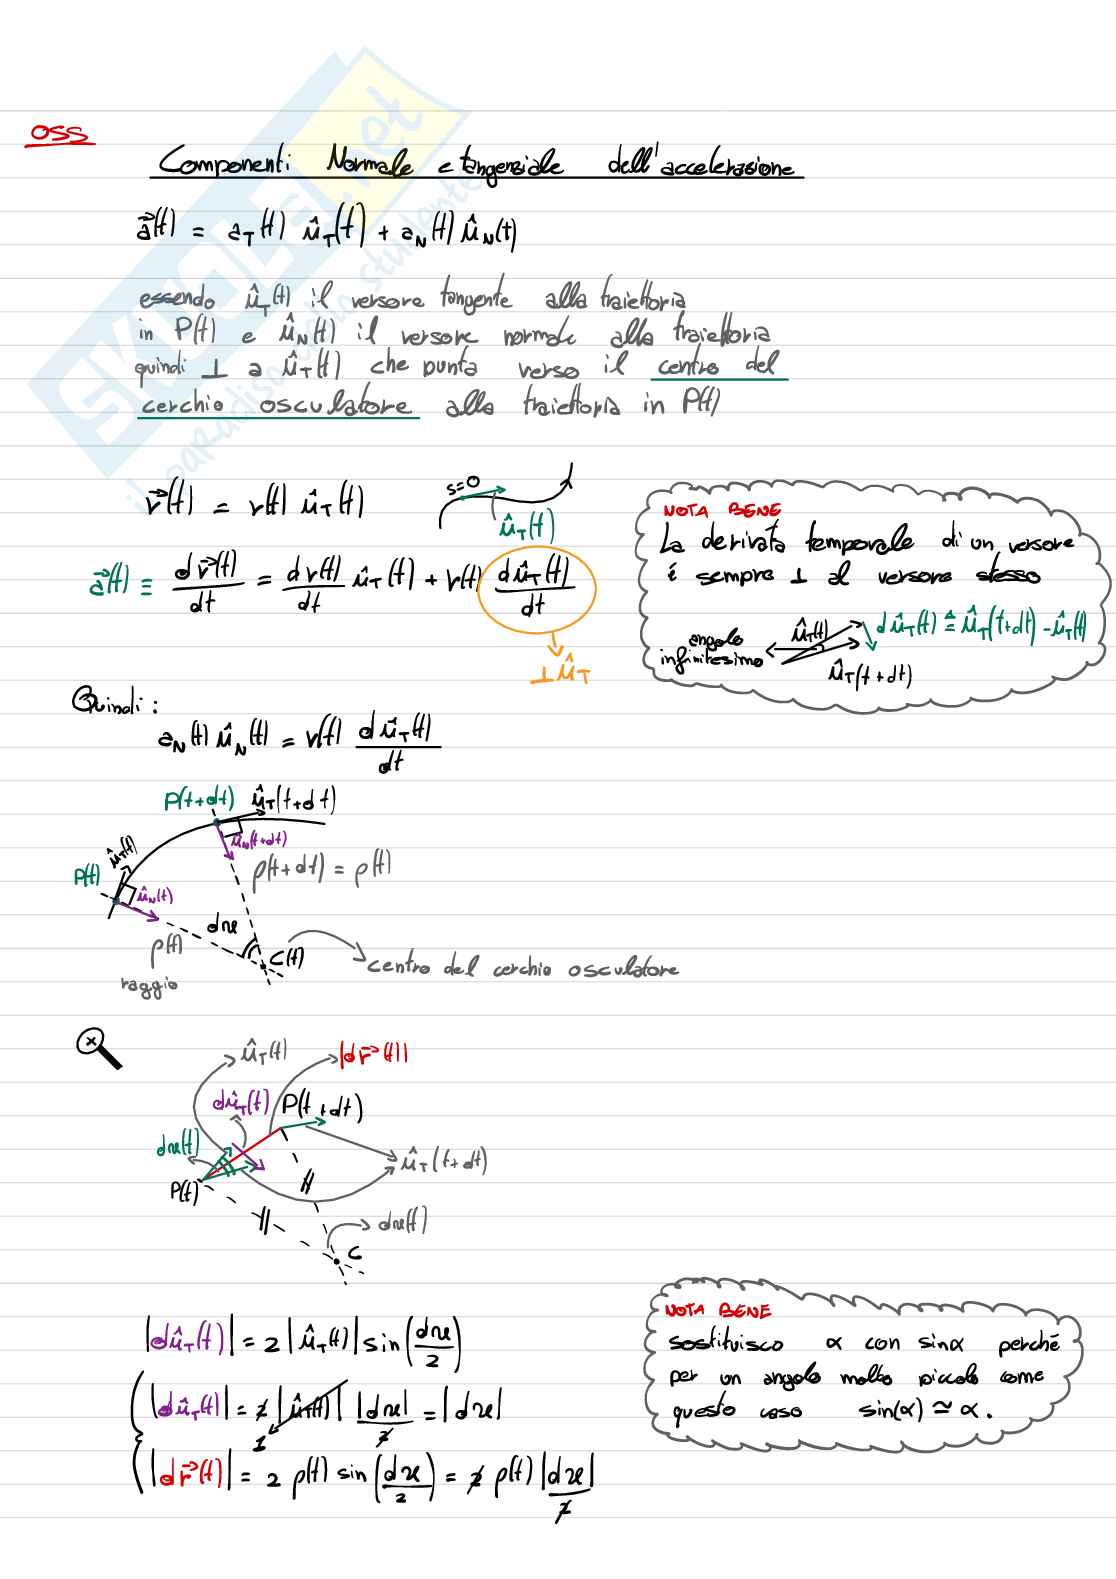 OSS
Componenti Normale e tangenziale dell'accelerazione
a⃗(t) = a_T(t) û_T(t) + a_N(t) û_N(t)
essendo û_T(t) il versore tangente alla traiettoria
in P(t) e û_N(t) il versore normale alla traiettoria
quindi ⊥ a û_T(t) che punta verso il centro del
cerchio osculatore alla traiettoria in P(t)
SKUOLA.net
il paradiso dello studente
v⃗(t) = v(t) û_T(t)
s=0
û_T(t)
a⃗(t) ≡ dv⃗(t)/dt = dv(t)/dt û_T(t) + v(t) dû_T(t)/dt
⊥ û_T
NOTA BENE
La derivata temporale di un versore
è sempre ⊥ al versore stesso
angolo
infinitesimo
û_T(t)
dû_T(t) ≜ û_T(t+dt) - û_T(t)
û_T(t+dt)
Quindi:
a_N(t) û_N(t) = v(t) dû_T(t)/dt
P(t+dt) û_T(t+dt)
û_T(t)
û_N(t+dt)
P(t)
ρ(t+dt) = ρ(t)
û_N(t)
dα
ρ(t)
C(t)
centro del cerchio osculatore
raggio
û_T(t)
|dr⃗(t)|
dû_T(t)
P(t+dt)
dα(t)
û_T(t+dt)
P(t)
dα(t)
C
|dû_T(t)| = 2 |û_T(t)| sin(dα/2)
|dû_T(t)| = 2 |û_T(t)| |dα|/2 = |dα|
1
|dr⃗(t)| = 2 ρ(t) sin(dα/2) = 2 ρ(t) |dα|/2
NOTA BENE
sostituisco α con sinα perché
per un angolo molto piccolo come
questo caso sin(α) ≃ α.